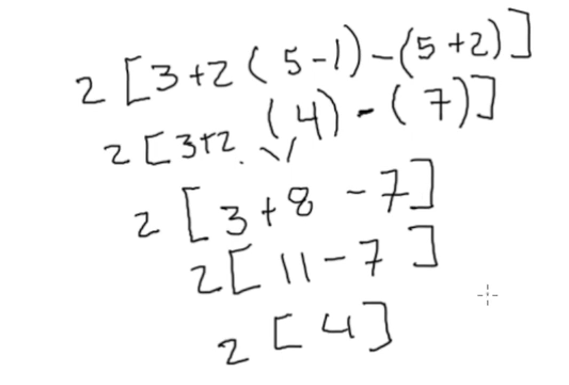 2 [3+2 ( 5-1) - (5+2)]
2 [3+2. (4) - ( 7)]
2 [3+8 -7]
2 [ 11-7 ]
2 [ 4 ]